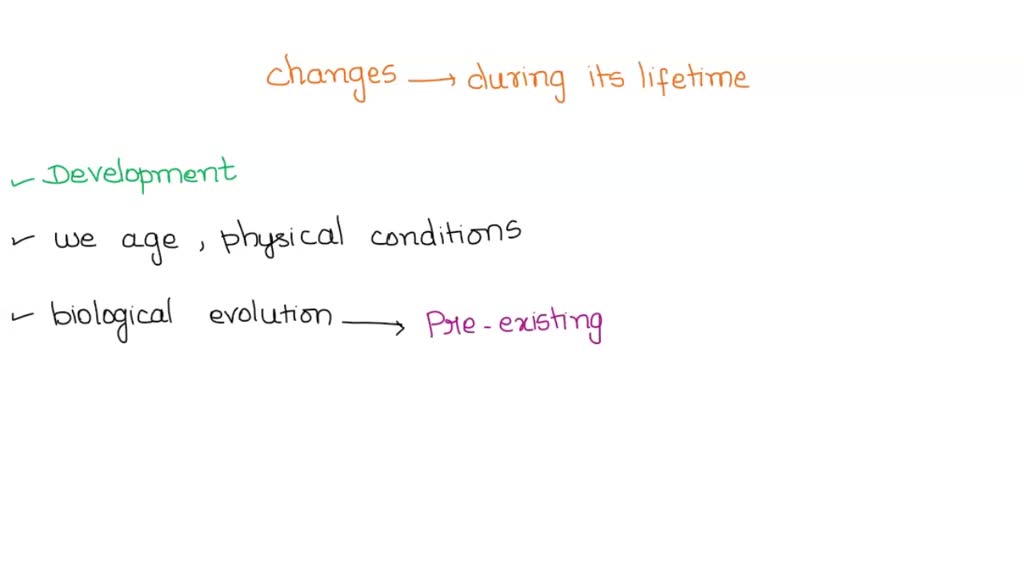 changes → during its lifetime
✓ Development
✓ we age, physical conditions
✓ biological evolution → Pre-existing